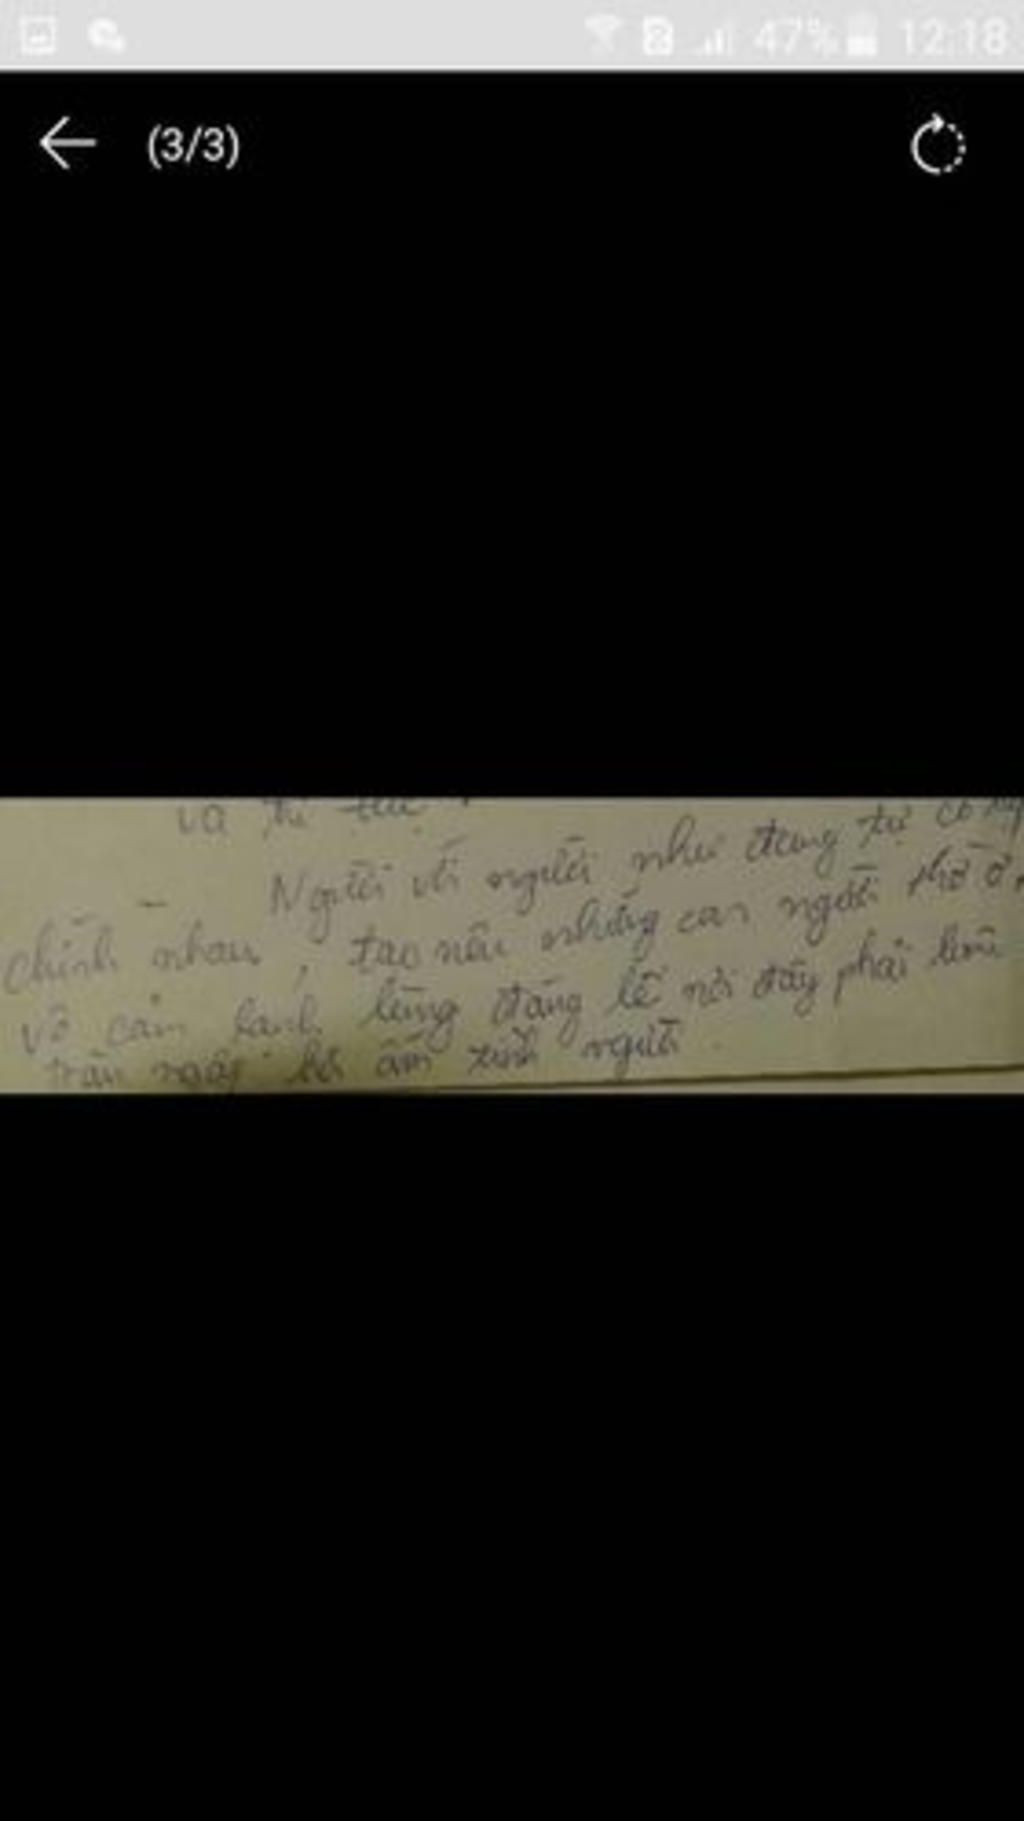 47% 12:18
(3/3)
và thì
- Người với người như đang tự cô
chính nhau, tạo nên những con người thờ ơ,
vô cảm, lạnh lùng đáng lẽ nơi đây phải luôn
tràn ngập hơi ấm tình người.